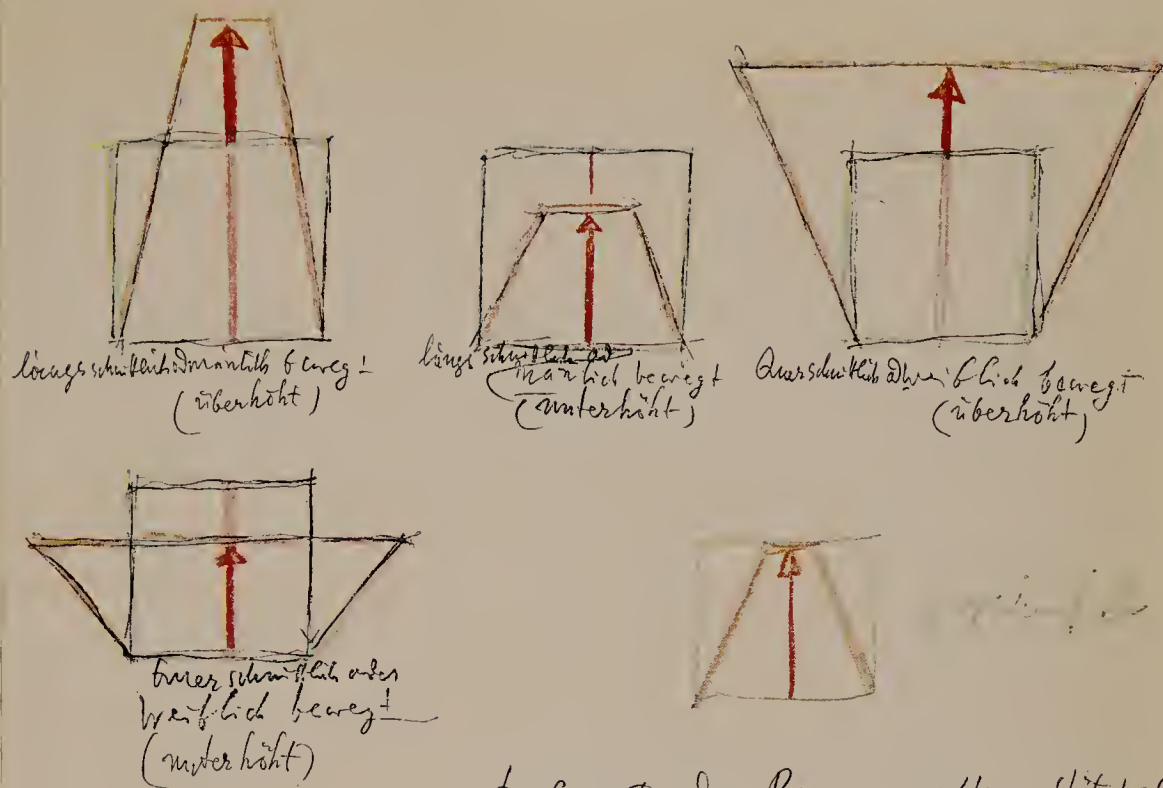 längsschnittlich od männlich bewegt
(überhöht)
längsschnittlich od
männlich bewegt
(unterhöht)
Querschnittlich od weiblich bewegt
(überhöht)
Querschnittlich oder
weiblich bewegt
(unterhöht)